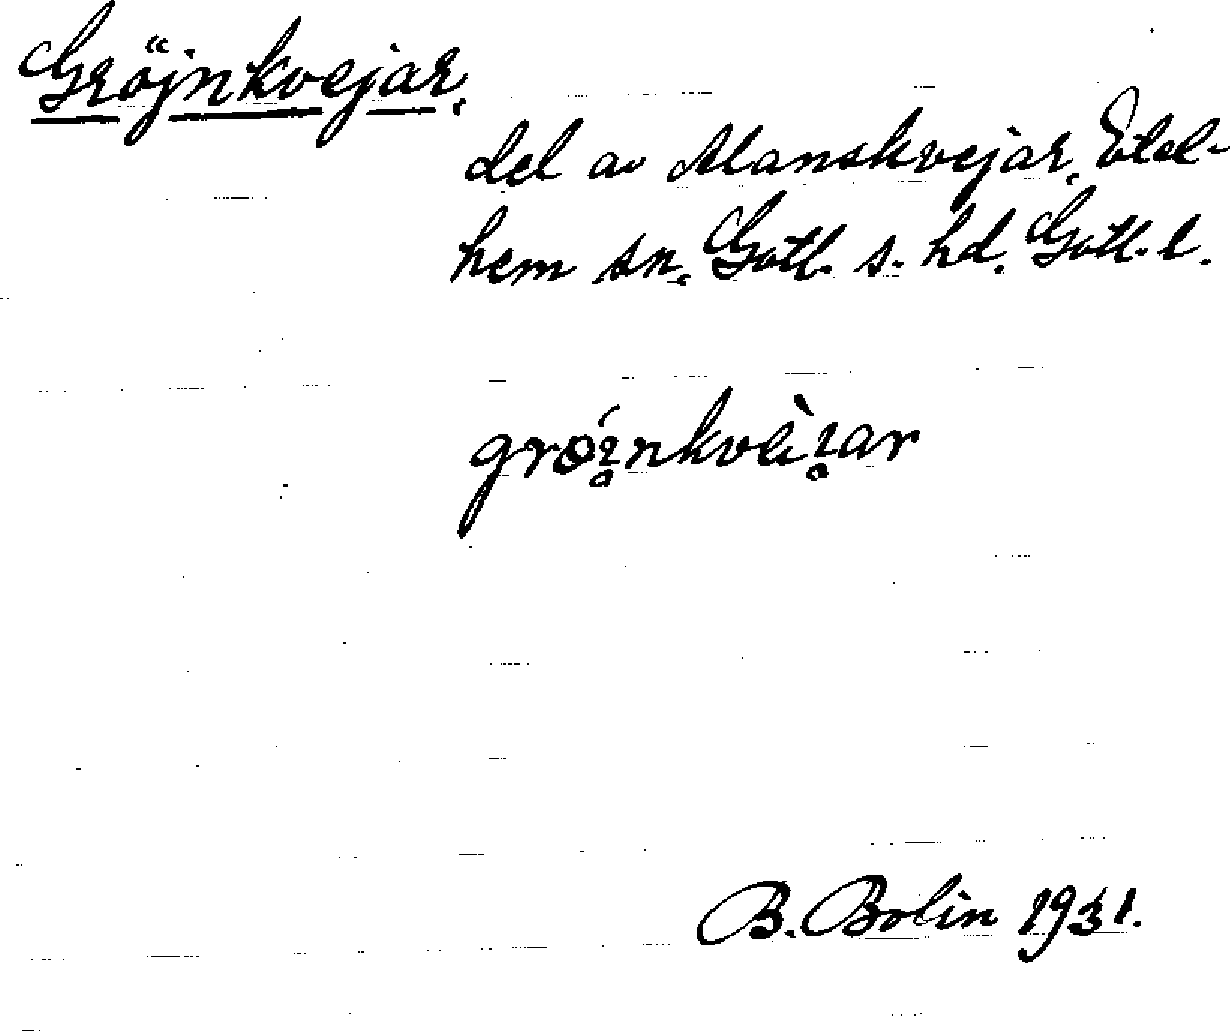 Gröjnkvejar,
del av Manskvejar, Etel-
hem sn, Gotl. s. hd. Gotl. l.
B. Bolin 1931.